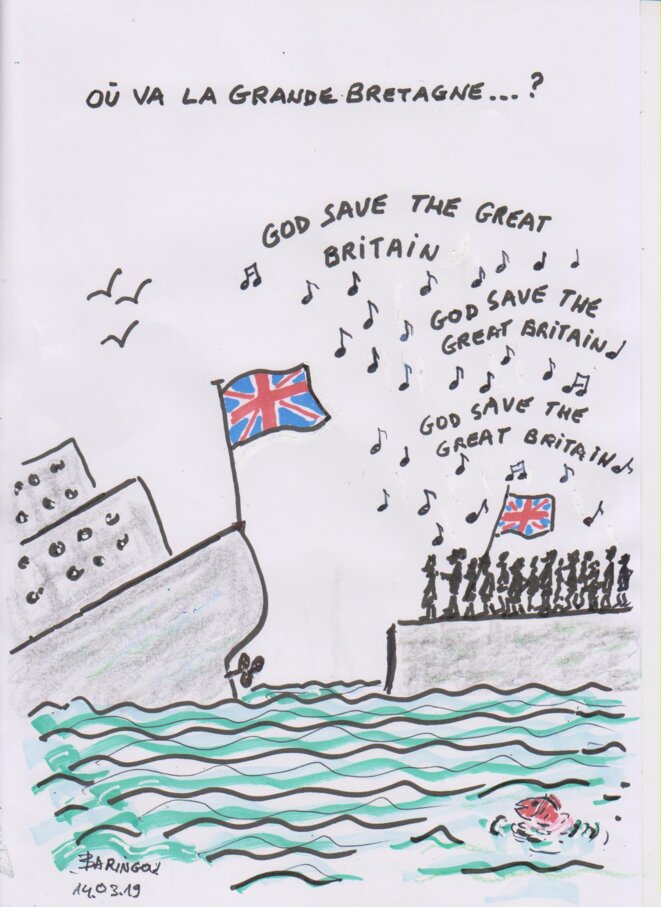 OÙ VA LA GRANDE BRETAGNE...?
GOD SAVE THE GREAT
BRITAIN
GOD SAVE THE
GREAT BRITAIN
GOD SAVE THE
GREAT BRITAIN
14.03.19